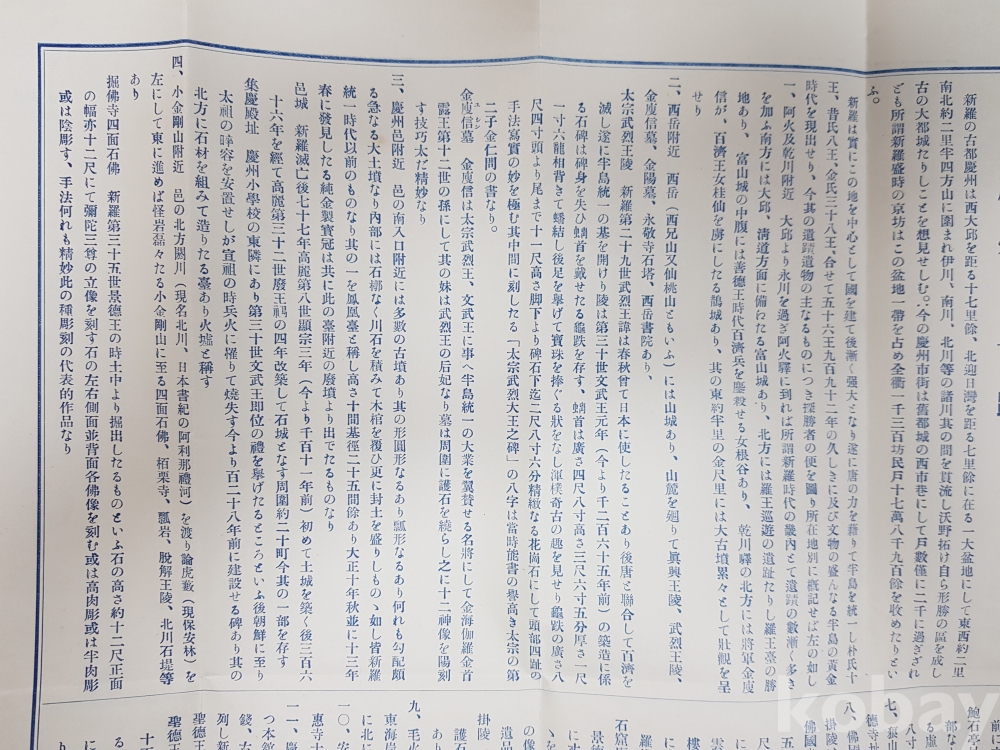 新羅の古都慶州は西大邱を距る十七里餘、北迎日灣を距る七里餘に在る一大盆地にして東西約二里
南北約二里半四方山に圍まれ伊川、南川、北川等の諸川其の間を貫流し沃野拓け自ら形勝の區を成し
古の大都城たりしことを想見せしむ。今の慶州市街は舊都城の西市巷にして戸數僅に二千に過ぎざれ
ども所謂新羅盛時の京坊はこの盆地一帶を占め全衢一千三百坊民戸十七萬八千九百餘を收めたりとい
ふ。
新羅は實にこの地を中心として國を建て後漸く强大となり遂に唐の力を藉りて半島を統一し朴氏十
王、昔氏八王、金氏三十八王、合せて五十六王九百九十二年の久しきに及び文物の盛んなる半島の黃金
時代を現出せり、今其の遺蹟遺物の主なるものにつき探勝者の便を圖り所在地別に槪記せば左の如し
一、阿火及乾川附近　大邱より永川を過ぎ阿火驛に到れば所謂新羅時代の畿內とて遺蹟の數漸く多き
を加ふ南方には大邱、淸道方面に備わたる富山城あり、北方には羅王巡遊の遺趾たりし羅王臺の勝
地あり、富山城の中腹には善德王時代百濟兵を鏖殺せる女根谷あり、乾川驛の北方には將軍金庾
信が、百濟王女桂仙を虜にしたる鵲城あり、其の東約半里の金尺里には大古墳累々として壯觀を呈
せり
二、西岳附近　西岳（西兄山又仙桃山ともいふ）には山城あり、山麓を廻りて眞興王陵、武烈王陵、
金庾信墓、金陽墓、永敬寺石塔、西岳書院あり、
太宗武烈王陵　新羅第二十九世武烈王諱は春秋曾て日本に使したることあり後唐と聯合して百濟を
滅し遂に半島統一の基を開けり陵は第三十世文武王元年（今より千二百六十五年前）の築造に係
る石碑は碑身を失ひ螭首を戴せたる龜趺を存す、螭首は廣さ四尺八寸高さ三尺六寸五分厚さ一尺
一寸六龍相背き蟠結し後足を擧げて寳珠を捧ぐる狀をなし渾樸奇古の趣を見せり龜趺の廣さ八
尺四寸頭より尾まで十一尺高さ脚下より碑石下迄二尺八寸六分精緻なる花崗石にして頭部四趾の
手法寫實の妙を極む其中間に刻したる「太宗武烈大王之碑」の八字は當時能書の譽高き太宗の第
二子金仁問の書なり。
金庾信墓　金庾信は太宗武烈王、文武王に事へ半島統一の大業を翼賛せる名將にして金海伽羅金首
露王第十二世の孫にして其の妹は武烈王の后妃なり墓は周圍に護石を繞らし之に十二神像を陽刻
す技巧太だ精妙なり
三、慶州邑附近　邑の南入口附近には多數の古墳あり其の形圓形なるあり瓢形なるあり何れも勾配頗
る急なる大土墳なり內部には石槨なく川石を積みて木棺を覆ひ更に封土を盛りしものゝ如し皆新羅
統一時代以前のものなり其の一を鳳凰臺と稱し高さ十間基徑二十五間餘あり大正十年秋並に十三年
春に發見したる純金製寳冠は共に此の臺附近の廢墳より出でたるものなり
邑城　新羅滅亡後七十七年高麗第八世顯宗三年（今より千百十一年前）初めて土城を築く後三百六
十六年を經て高麗第三十二世廢王禑の四年改築して石城となす周圍約二十町今其の一部を存す
集慶殿址　慶州小學校の東隣にあり第三十世文武王卽位の禮を擧げたるところといふ後朝鮮に至り
太祖の晬容を安置せしが宣祖の時兵火に罹りて燒失す今より百二十八年前に建設せる碑あり其の
北方に石材を組みて造りたる臺あり火墟と稱す
四、小金剛山附近　邑の北方閼川（現名北川、日本書紀の阿利那禮河）を渡り論虎藪（現保安林）を
左にして東に進めば怪岩磊々たる小金剛山に至る四面石佛、栢栗寺、瓢岩、脫解王陵、北川石堤等
あり
掘佛寺四面石佛　新羅第三十五世景德王の時土中より掘出したるものといふ石の高さ約十二尺正面
の幅亦十二尺にて彌陀三尊の立像を刻す石の左右側面並背面各佛像を刻む或は高肉彫或は半肉彫
或は陰彫す、手法何れも精妙此の種彫刻の代表的作品なり
鮑石亭
七、狼山
德寺
八、佛
掛陵
佛國
石窟
景德
の像
遺品
掛陵
護石
あり
九、毛火
東海岸
に北
一〇、安
惠寺十
一一、慶
つ本館
錢、古
列し新
聖德王
聖德王
十二
kobay